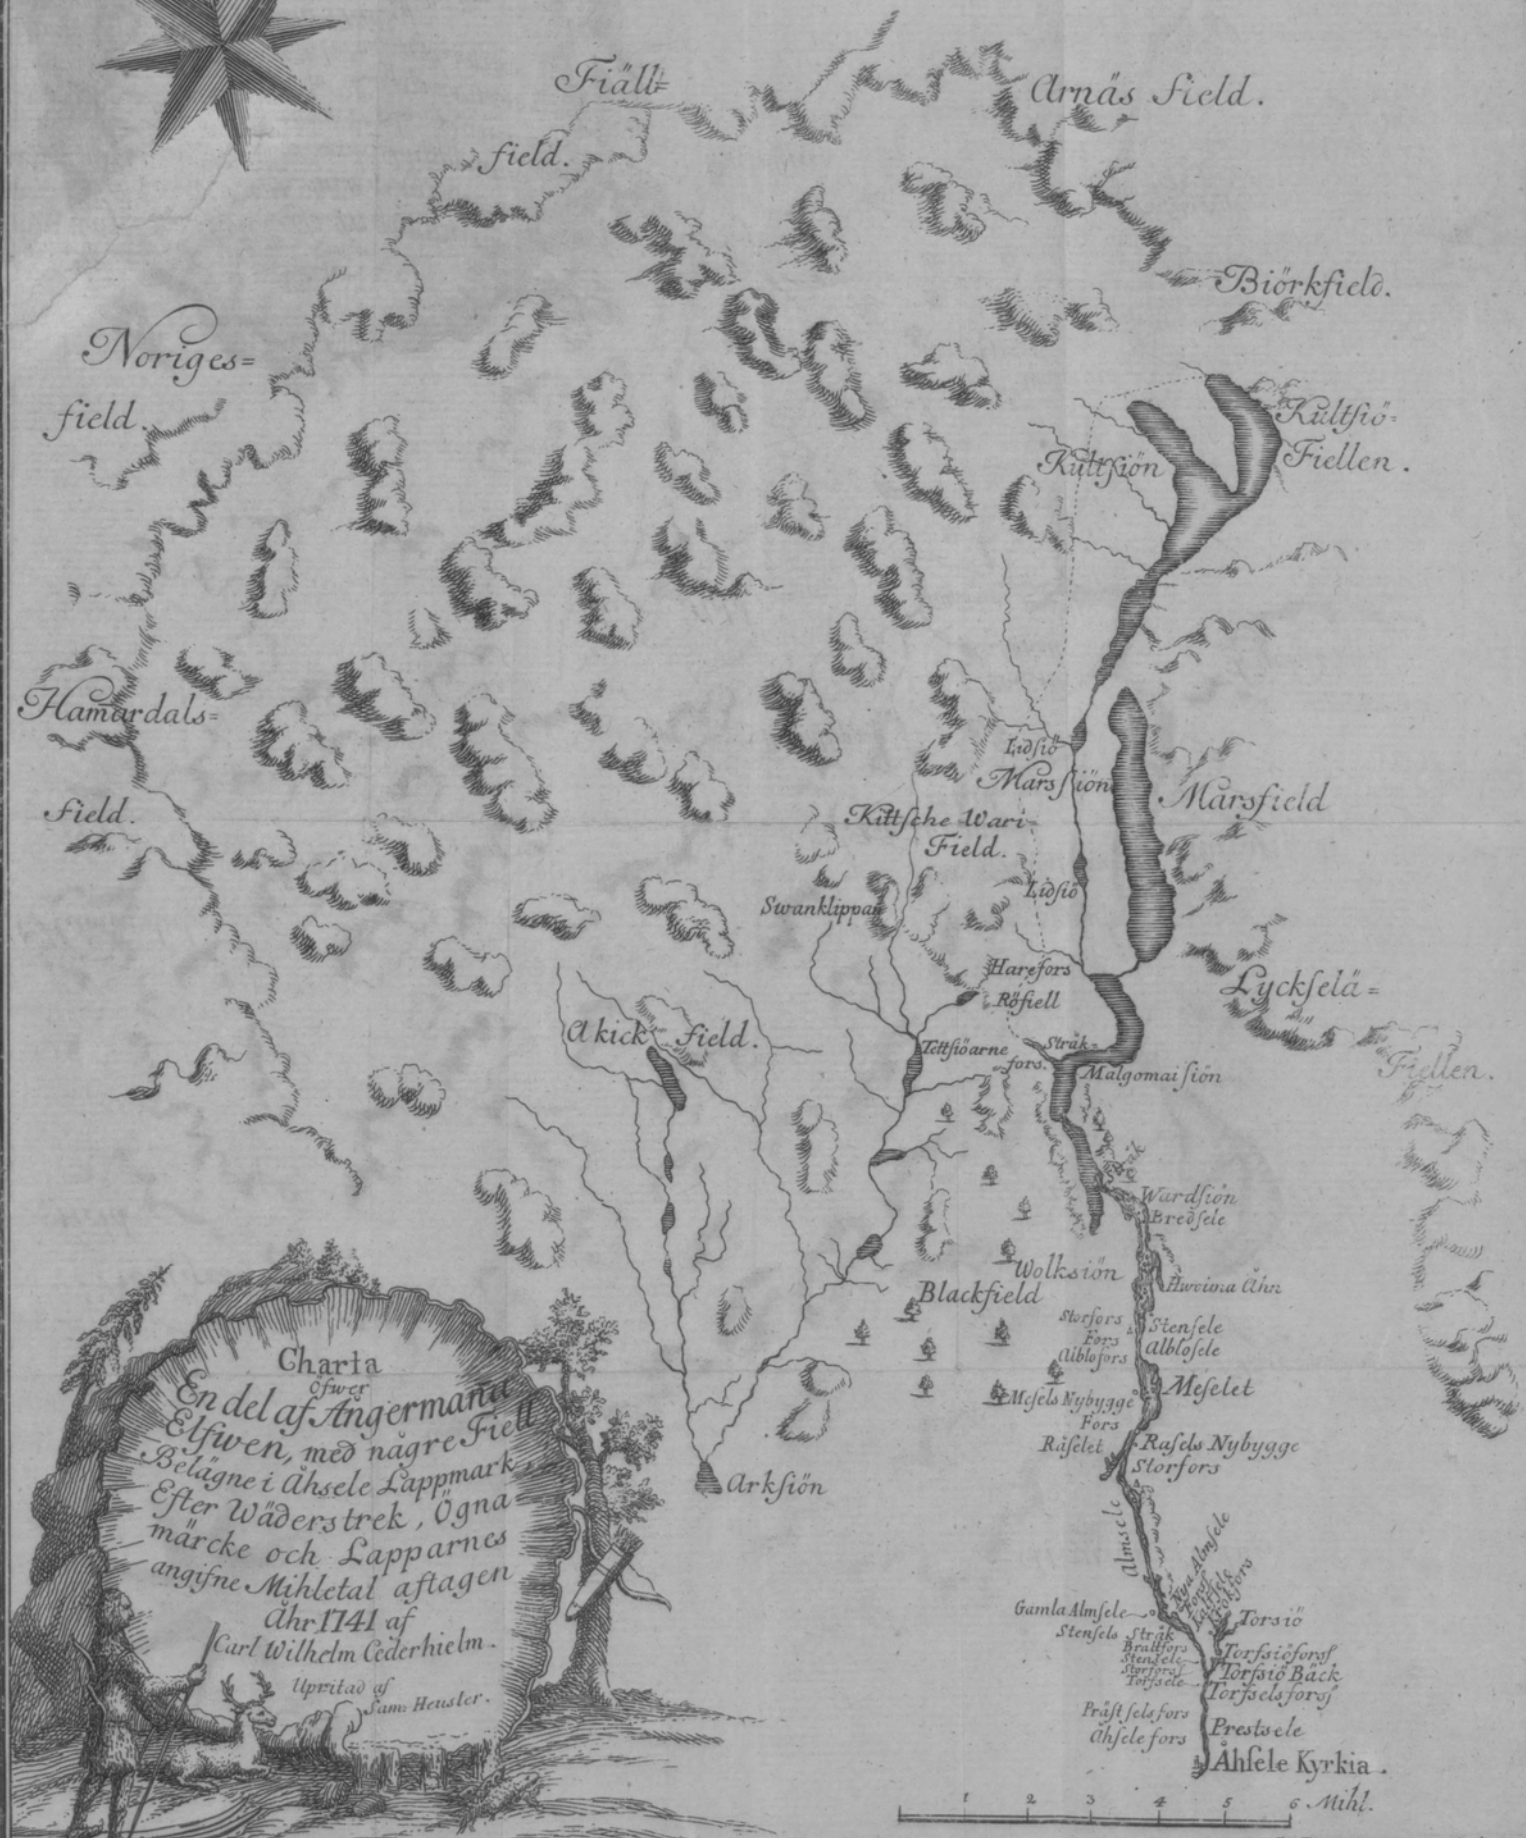 Fiäll=
field.
Arnäs field.
Biörkfield.
Noriges=
field.
Kultsiö-
Fiellen.
Kultsiön
Hamardals=
field.
Lidsiö
Marssiön
Marsfield
Kittsche Wari-
Field.
Lidsiö
Swanklippan
Harefors
Röfiell
Lyckselä=
Fiellen.
Akick field.
Tettsiöarne
Stråk-
fors.
Malgomaisiön
Wardsiön
Bredsele
Wolksiön
Hwoima Åhn
Blackfield
Storfors
Fors
Alblofors
Stensele
Alblosele
Meselet
Mesels Nybygge
Fors
Råselet
Rasels Nybygge
Storfors
Arksiön
Almsele
Nya Almsele
Gamla Almsele
Stensels Stråk
Brattfors
Stensele
Storfors
Torfsele
Torsiö
Torfsiöforss
Torfsiö Bäck
Torfselsforss
Präst selsfors
Åhsele fors
Prestsele
Åhsele Kyrkia.
Charta
öfwer
En del af Ångermanna
Elfwen, med någre Fiell
Belägne i Åhsele Lappmark
Efter Wäderstrek, Ögna
märcke och Lapparnes
angifne Mihletal aftagen
Åhr 1741 af
Carl Wilhelm Cederhielm.
Upritad af
Sam: Heusler.
1 2 3 4 5 6 Mihl.